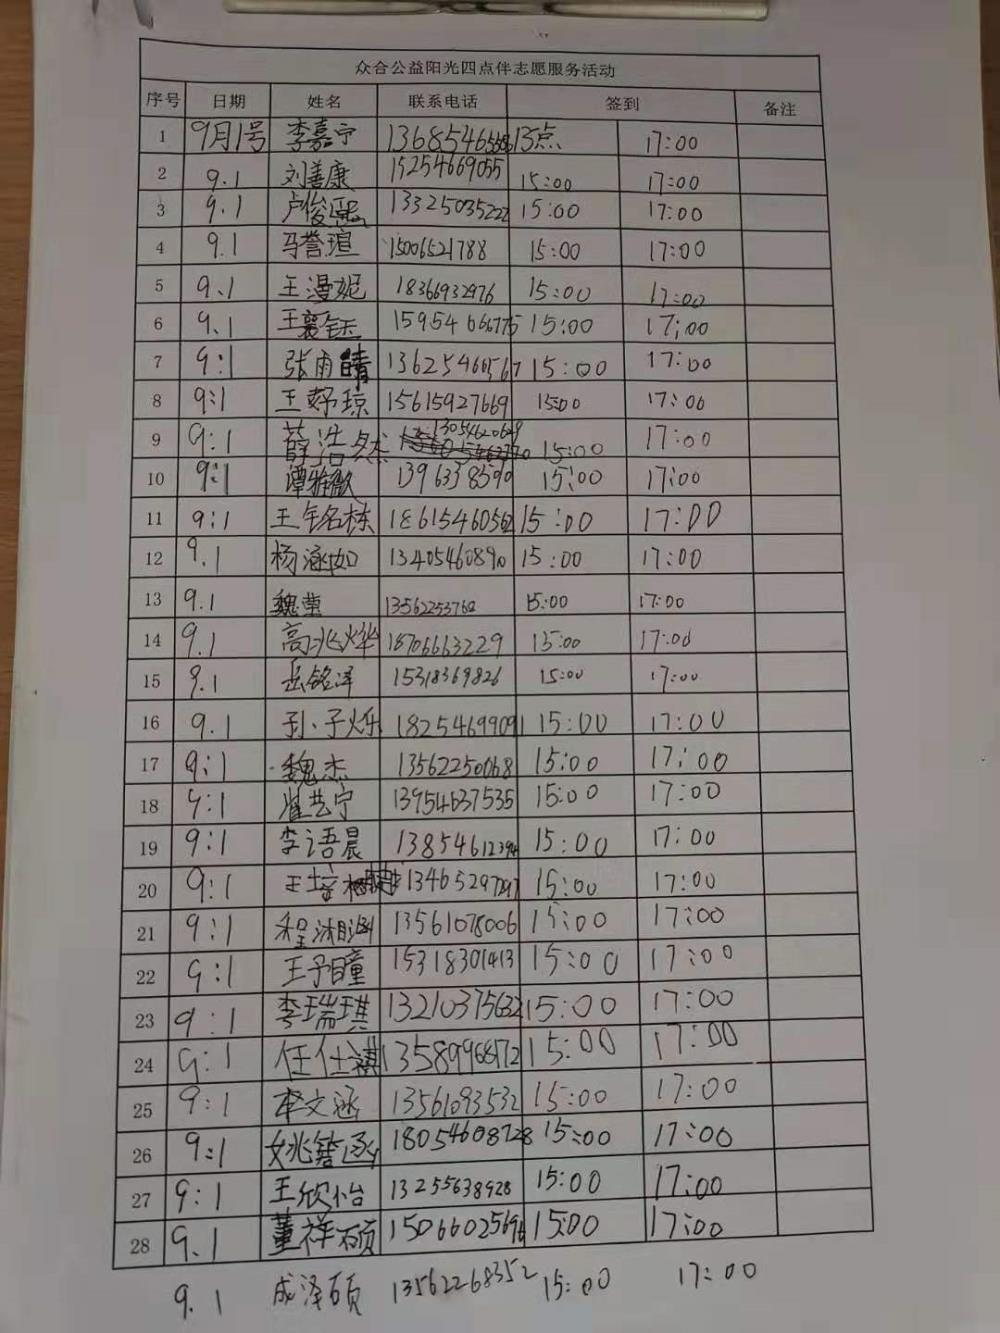 众合公益阳光四点伴志愿服务活动
序号 日期 姓名 联系电话 签到 备注
1 9月1号 李嘉宁 13685465586 15点 17:00
2 9.1 刘善康 15254669055 15:00 17:00
3 9.1 卢俊熙 13325035222 15:00 17:00
4 9.1 马誉瑄 15006521788 15:00 17:00
5 9.1 王漫妮 18366932976 15:00 17:00
6 9.1 王襄钰 15954666775 15:00 17:00
7 9:1 张雨晴 13625460567 15:00 17:00
8 9:1 王舒琼 15615927669 15:00 17:00
9 9:1 薛浩杰 13054620629 15:00 17:00
10 9:1 谭雅歆 1396338590 15:00 17:00
11 9:1 王铭栋 18615460562 15:00 17:00
12 9.1 杨涵如 13405460890 15:00 17:00
13 9.1 魏莹 13562253762 15:00 17:00
14 9.1 高兆烨 18706663229 15:00 17:00
15 9.1 岳铭泽 15318369826 15:00 17:00
16 9.1 孙子烁 18254699091 15:00 17:00
17 9:1 魏杰 13562250068 15:00 17:00
18 9:1 崔艺宁 13954637535 15:00 17:00
19 9:1 李语晨 13854612394 15:00 17:00
20 9:1 王培 13465297297 15:00 17:00
21 9:1 程湘 13561078006 15:00 17:00
22 9:1 王予瞳 15318301413 15:00 17:00
23 9:1 李瑞琪 13210375632 15:00 17:00
24 9:1 任仕祺 13589968172 15:00 17:00
25 9:1 李文涵 13561093532 15:00 17:00
26 9:1 姚馨函 18054608728 15:00 17:00
27 9:1 王欣怡 13255638928 15:00 17:00
28 9.1 董祥硕 15066025696 15:00 17:00
9.1 成泽硕 13562268352 15:00 17:00